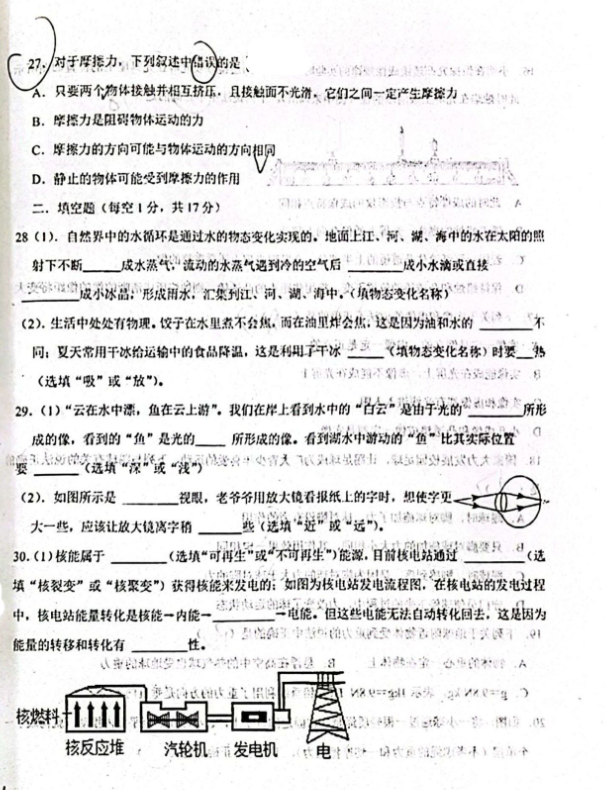 27. 对于摩擦力，下列叙述中错误的是
A. 只要两个物体接触并相互挤压，且接触面不光滑，它们之间一定产生摩擦力
B. 摩擦力是阻碍物体运动的力
C. 摩擦力的方向可能与物体运动的方向相同
D. 静止的物体可能受到摩擦力的作用
二、填空题（每空1分，共17分）
28（1）. 自然界中的水循环是通过水的物态变化实现的。地面上江、河、湖、海中的水在太阳的照
射下不断_____成水蒸气，流动的水蒸气遇到冷的空气后_______成小水滴或直接
_______成小冰晶，形成雨水，汇集到江、河、湖、海中。（填物态变化名称）
（2）. 生活中处处有物理，饺子在水里煮不会焦，而在油里炸会焦，这是因为油和水的_______不
同；夏天常用干冰给运输中的食品降温，这是利用了干冰_____（填物态变化名称）时要___热
（选填“吸”或“放”）。
29.（1）“云在水中漂，鱼在云上游”。我们在岸上看到水中的“白云”是由于光的_______所形
成的像，看到的“鱼”是光的____所形成的像。看到湖水中游动的“鱼”比其实际位置
要______（选填“深”或“浅”）
（2）. 如图所示是_______视眼，老爷爷用放大镜看报纸上的字时，想使字更
大一些，应该让放大镜离字稍______些（选填“近”或“远”）。
30.（1）核能属于_______（选填“可再生”或“不可再生”）能源，目前核电站通过_______（选
填“核裂变”或“核聚变”）获得核能来发电的；如图为核电站发电流程图，在核电站的发电过程
中，核电站能量转化是核能→内能→_______→电能。但这些电能无法自动转化回去，这是因为
能量的转移和转化有_______性。
核燃料
核反应堆 汽轮机 发电机 电